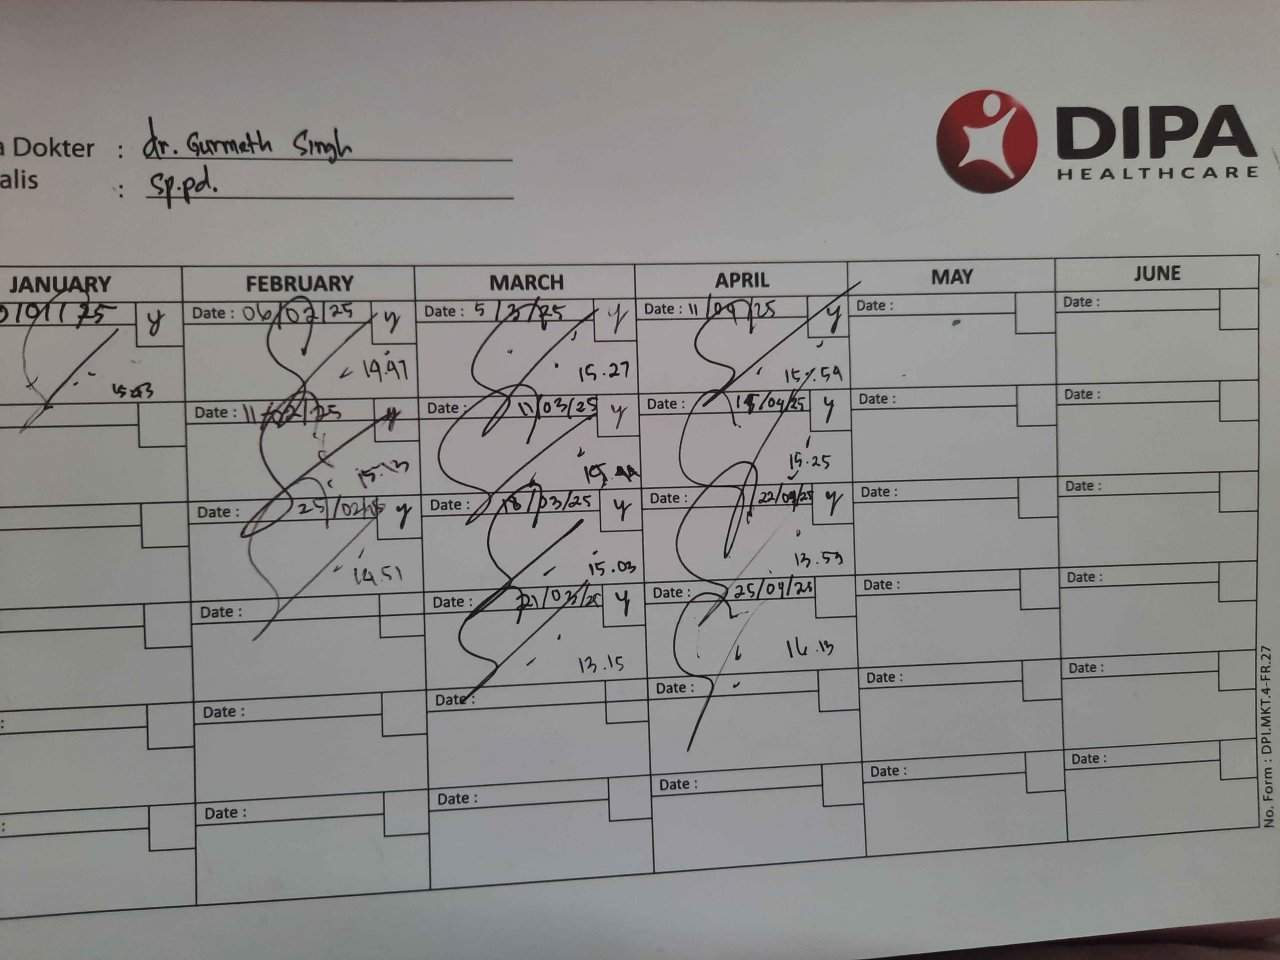 a Dokter : dr. Gurmeth Singh
alis : Sp.pd.
DIPA
HEALTHCARE
JANUARY FEBRUARY MARCH APRIL MAY JUNE
/01/25 y Date : 06/02/25 y Date : 5/3/25 y Date : 11/04/25 y Date : Date :
14.97 15.27 15.54
Date : 11/02/25 y Date : 11/03/25 y Date : /04/25 y Date : Date :
15.13 15.44 15.25
Date : 25/02/25 y Date : 18/03/25 y Date : 22/04/25 y Date : Date :
14.51 15.03 13.53
Date : Date : 21/03/25 y Date : 25/04/25 Date : Date :
13.15 16.13
: Date : Date : Date : Date : Date :
: Date : Date : Date : Date : Date :
No. Form : DPI.MKT.4-FR.27